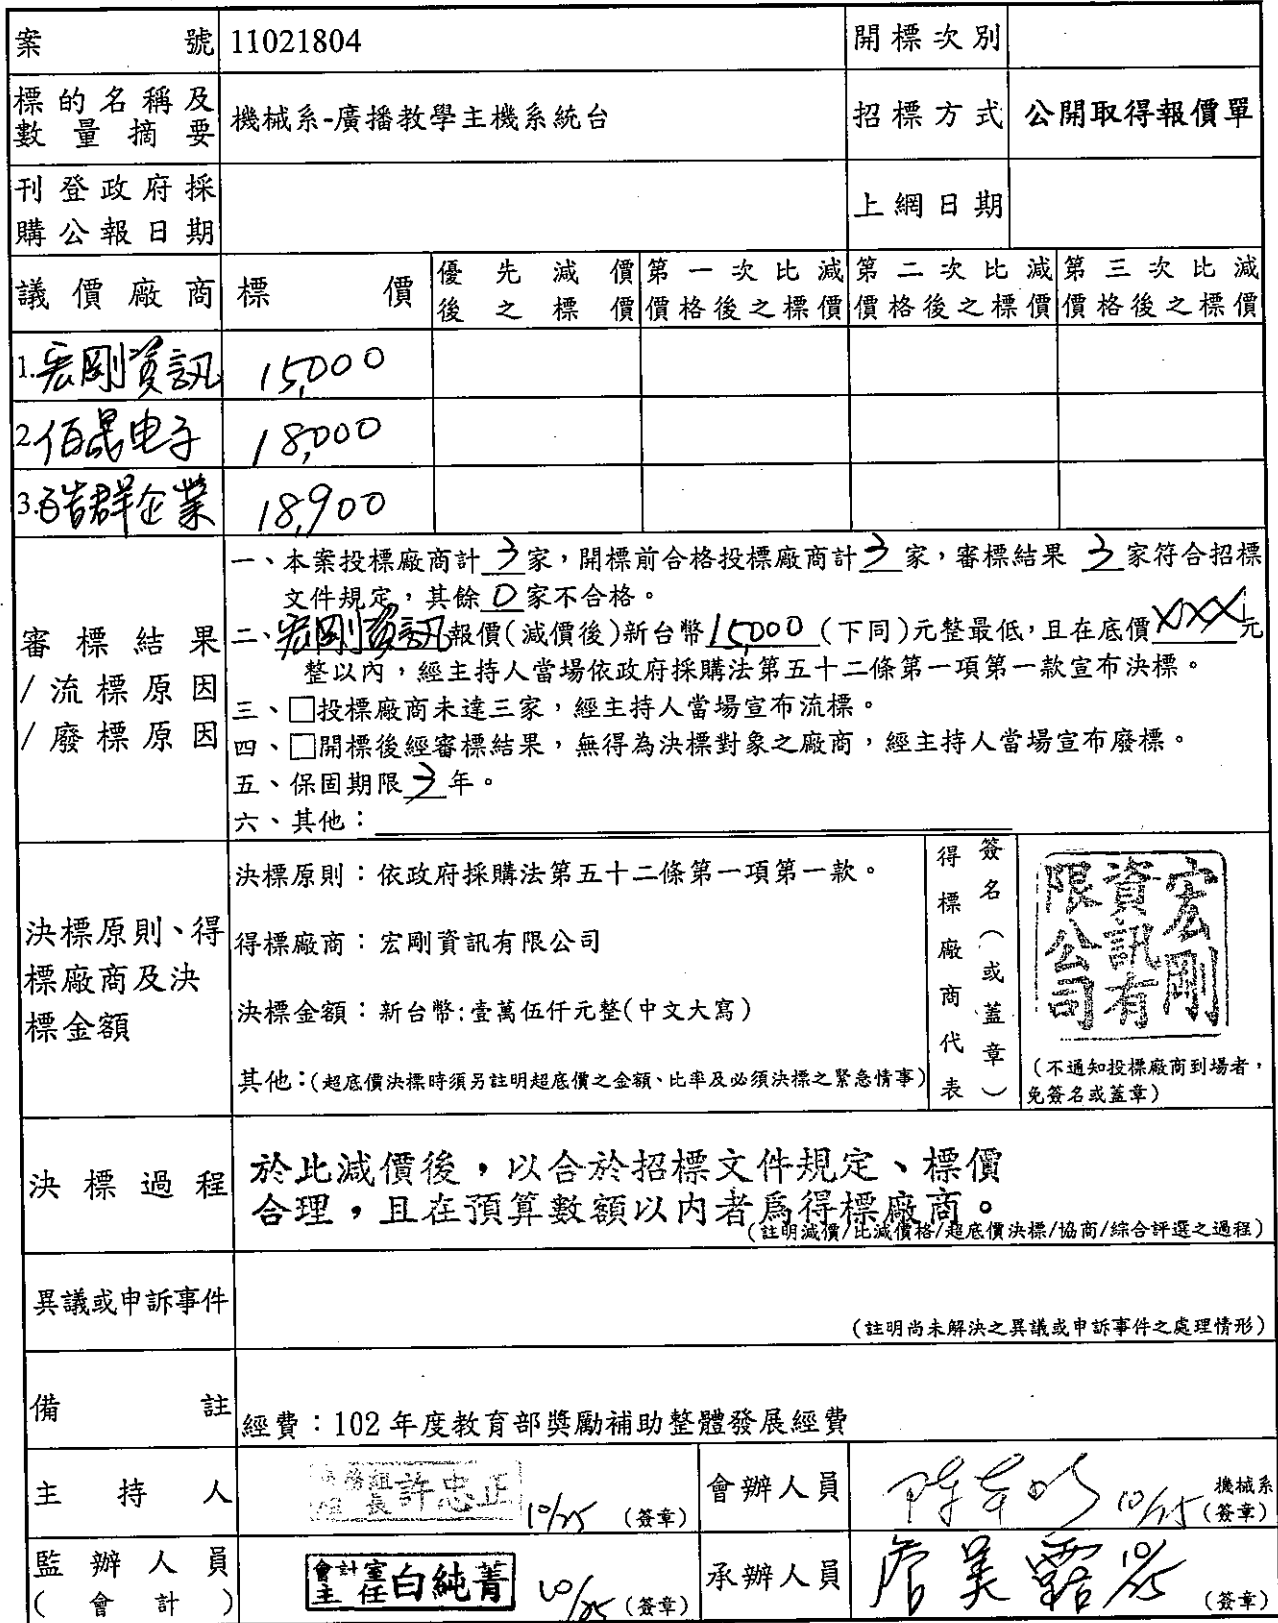 案號 11021804 開標次別
標的名稱及數量摘要 機械系-廣播教學主機系統台 招標方式 公開取得報價單
刊登政府採購公報日期 上網日期
議價廠商 標價 優先減價後之標價 第一次比減價格後之標價 第二次比減價格後之標價 第三次比減價格後之標價
1.宏剛資訊 15,000
2.佰晟电子 18,000
3.皓群企業 18,900
審標結果/流標原因/廢標原因
一、本案投標廠商計 3 家，開標前合格投標廠商計 3 家，審標結果 3 家符合招標
文件規定，其餘 0 家不合格。
二、宏剛資訊報價(減價後)新台幣15,000(下同)元整最低，且在底價XXX元
整以內，經主持人當場依政府採購法第五十二條第一項第一款宣布決標。
三、□投標廠商未達三家，經主持人當場宣布流標。
四、□開標後經審標結果，無得為決標對象之廠商，經主持人當場宣布廢標。
五、保固期限 3 年。
六、其他：
決標原則、得標廠商及決標金額
決標原則：依政府採購法第五十二條第一項第一款。
得標廠商：宏剛資訊有限公司
決標金額：新台幣:壹萬伍仟元整(中文大寫)
其他：(超底價決標時須另註明超底價之金額、比率及必須決標之緊急情事)
得標廠商代表簽名（或蓋章）
宏剛資訊有限公司
(不通知投標廠商到場者，
免簽名或蓋章)
決標過程
於此減價後，以合於招標文件規定、標價
合理，且在預算數額以內者為得標廠商。
(註明減價/比減價格/超底價決標/協商/綜合評選之過程)
異議或申訴事件
(註明尚未解決之異議或申訴事件之處理情形)
備註 經費：102 年度教育部獎勵補助整體發展經費
主持人 組長 許忠正 10/25 (簽章) 會辦人員 10/25 機械系 (簽章)
監辦人員(會計) 會計室主任 白純菁 10/25 (簽章) 承辦人員 詹美露 10/25 (簽章)